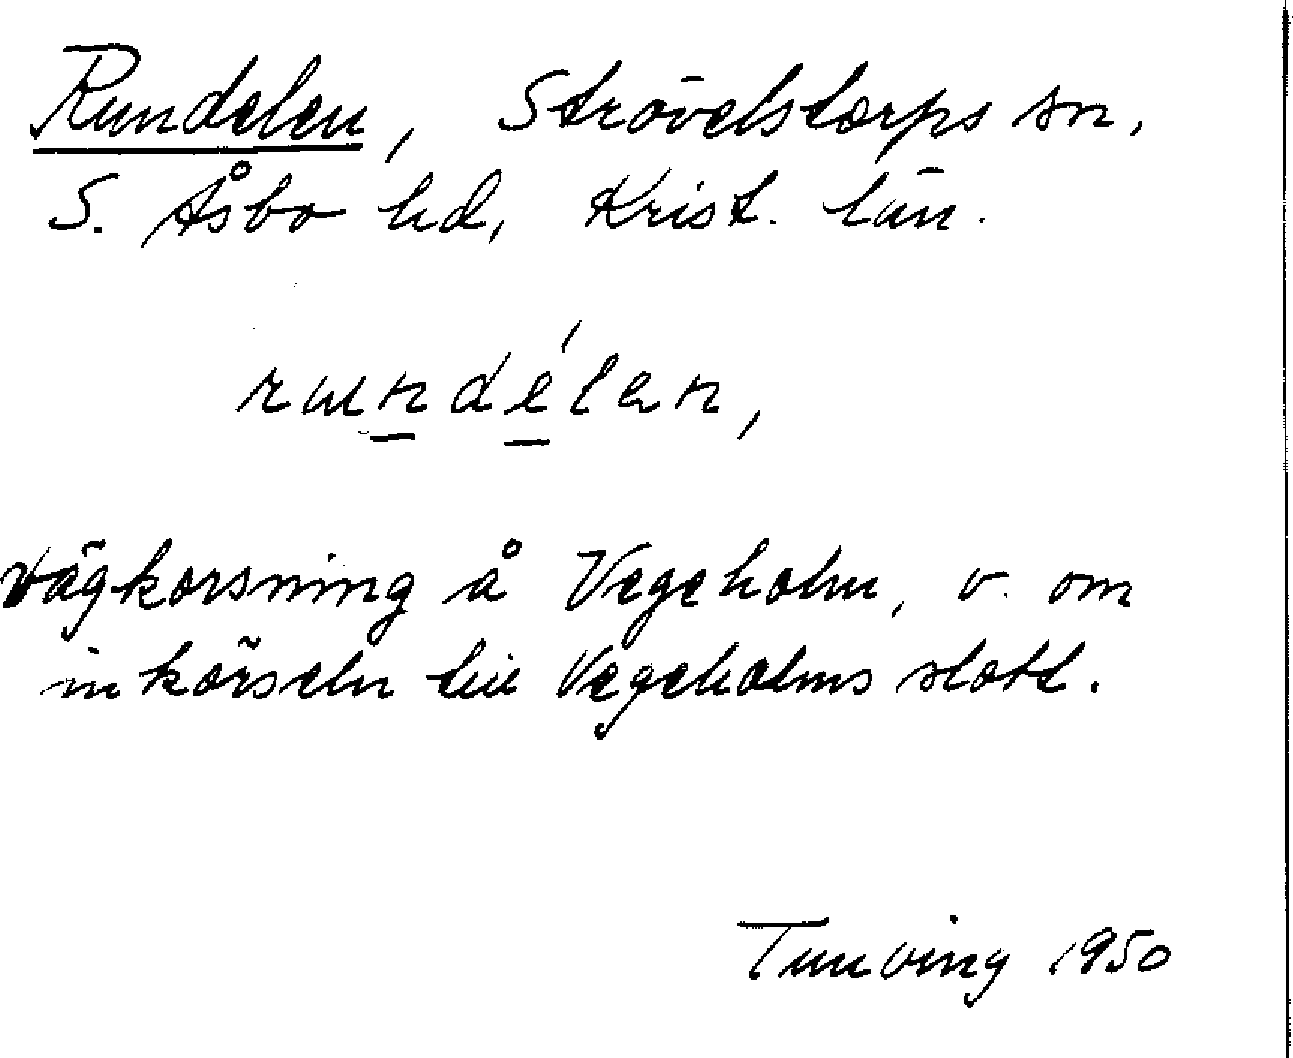 Rundelen, Strövelstorps sn.
S. Åsbo hd, Krist. län.
rundélen,
Vägkorsning å Vegeholm, v. om
inkörseln till Vegeholms slott.
Tunving 1950